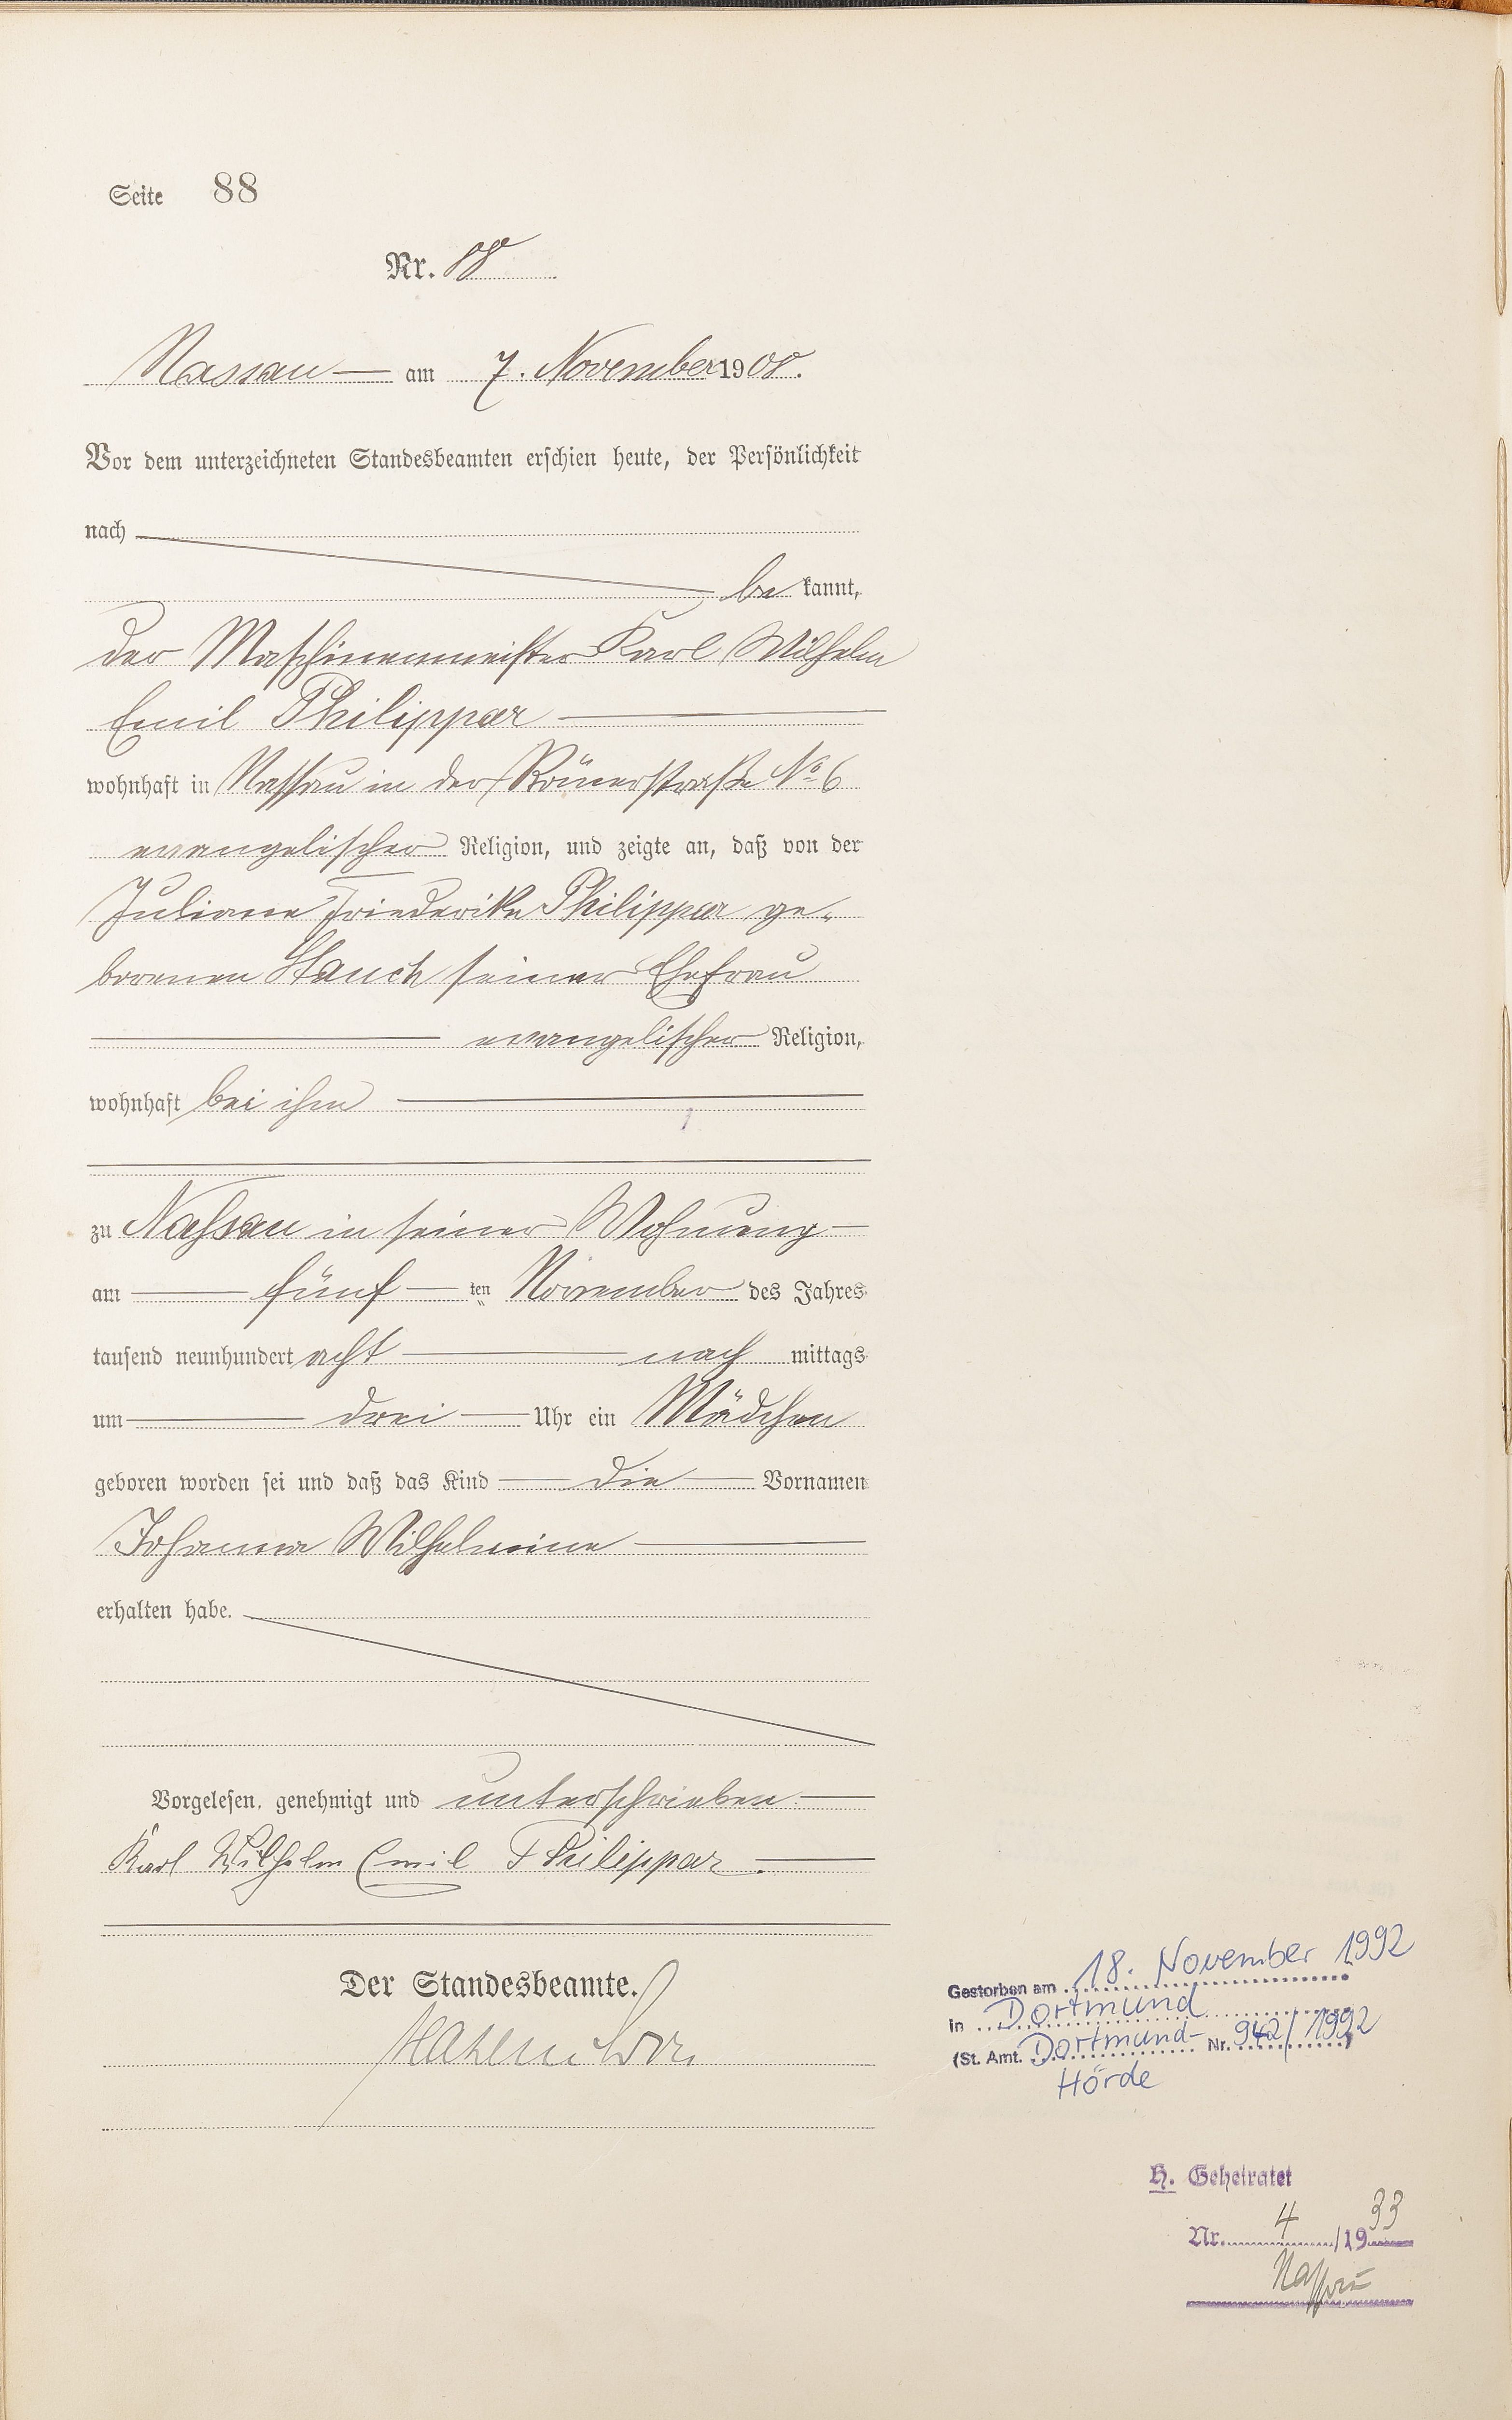 Seite 88
Nr. 88
Nassau am 7. November 1908.
Vor dem unterzeichneten Standesbeamten erschien heute, der Persönlichkeit
nach
be kannt,
der Maschinenmeister Karl Wilhelm
Emil Philippar
wohnhaft in Nassau in der Römerstraße No 6
evangelischer Religion, und zeigte an, daß von der
Juliane Friederike Philippar ge-
borenen Stauch seiner Ehefrau
evangelischer Religion,
wohnhaft bei ihm
zu Nassau in seiner Wohnung
am fünf ten November des Jahres
tausend neunhundert acht nach mittags
um drei Uhr ein Mädchen
geboren worden sei und daß das Kind die Vornamen
Johanna Wilhelmine
erhalten habe.
Vorgelesen, genehmigt und unterschrieben
Karl Wilhelm Emil Philippar.
Der Standesbeamte.
Gestorben am 18. November 1992
in Dortmund
(St. Amt. Dortmund- Nr. 942/1992)
Hörde
H. Geheiratet
Nr. 4 /1933
Nassau